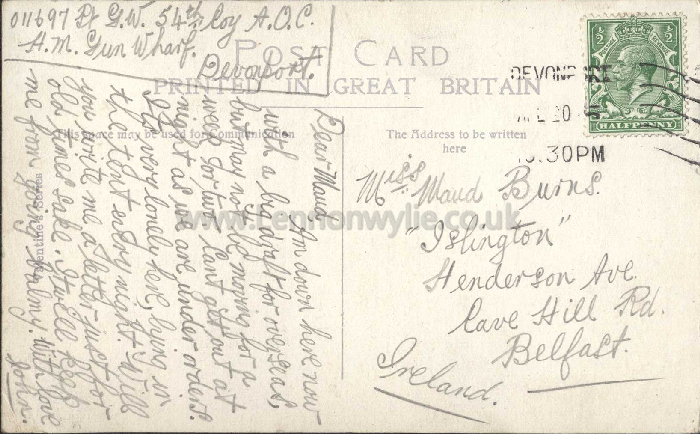 011697 Pt G.W. 54th Coy A.O.C.
H.M. Gun Wharf.
Devonport.
POST CARD
PRINTED IN GREAT BRITAIN
This space may be used for Communication
The Address to be written
here
DEVONP
10.30PM
HALFPENNY
Dear Maud Im down here now
with a big draft for overseas,
but may not be moving for a
week or two. Cant get out at
night as we are under orders.
Its very lonely here, lying in
the tent every night. Will
you write me a letter just for
old times sake. It will keep
me from going balmy. With love
John.
Miss Maud Burns.
"Islington"
Henderson Ave.
Cave Hill Rd.
Belfast.
Ireland.
www.lennonwylie.co.uk